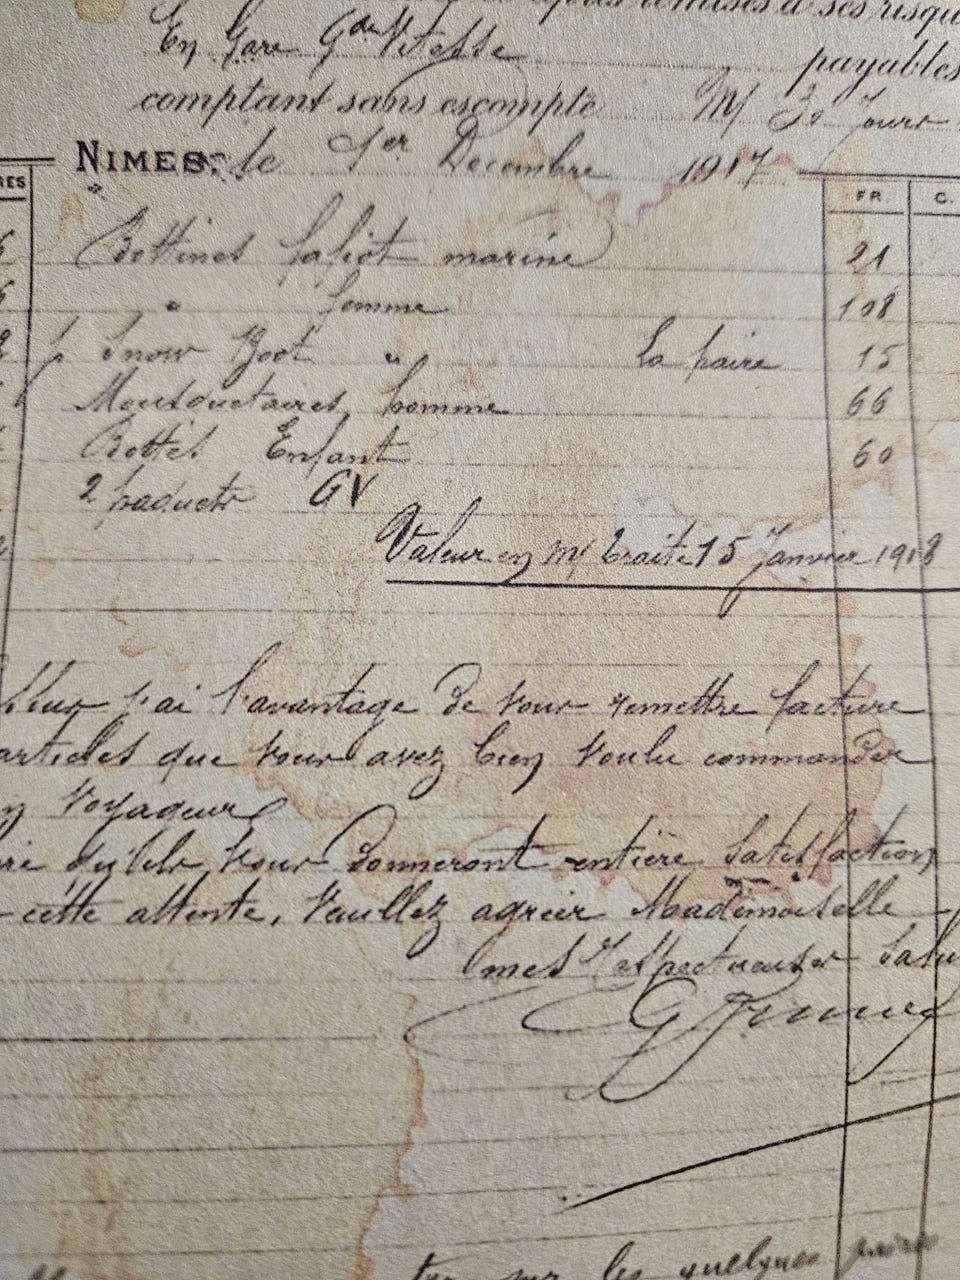 remises à ses risqu
En Gare Gde Vitesse payables
comptant sans escompte M/ 30 Jours
NIMES, le 1er Decembre 1917
RES FR. C.
Bottines marine 21
" femme 108
Snow Boot " La paire 15
Mousquetaires homme 66
Bottes Enfant 60
2 paquets GV
Valeur en m/ traite 15 Janvier 1918
j'ai l'avantage de vous remettre facture
articles que vous avez bien voulu commander
Voyageur
qu'ils vous donneront entière satisfaction
cette attente, Veuillez agréer Mademoiselle
mes respectueuses Salu
G
sur les quelques paires